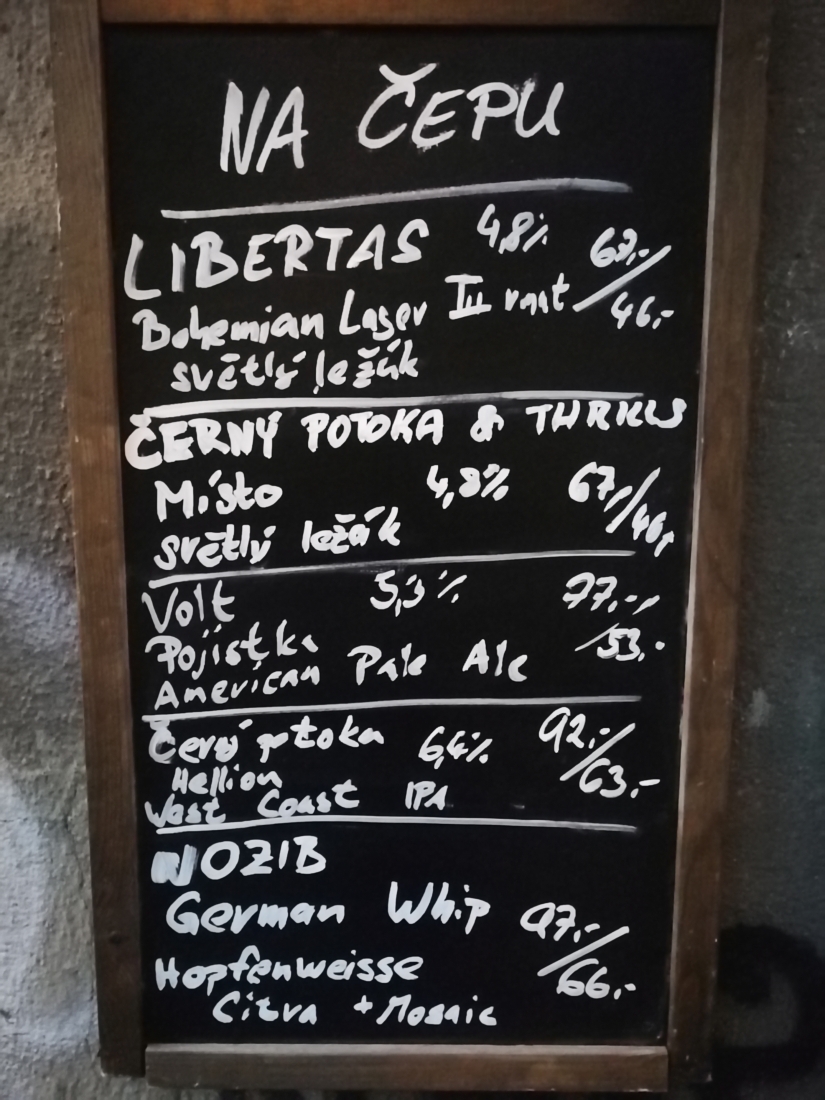 NA ČEPU
LIBERTAS 4,8% 67,-/46,-
Bohemian Lager III vmat
světlý ležák
ČERNÝ POTOKA &
Místo 4,8% 67,-/46,-
světlý ležák
Volt 5,3% 77,-/53,-
Pojistka
American Pale Ale
Černý potoka 6,4% 92,-/63,-
Hellion
West Coast IPA
NOZIB
German Whip 97,-/66,-
Hopfenweisse
Citra + Mosaic